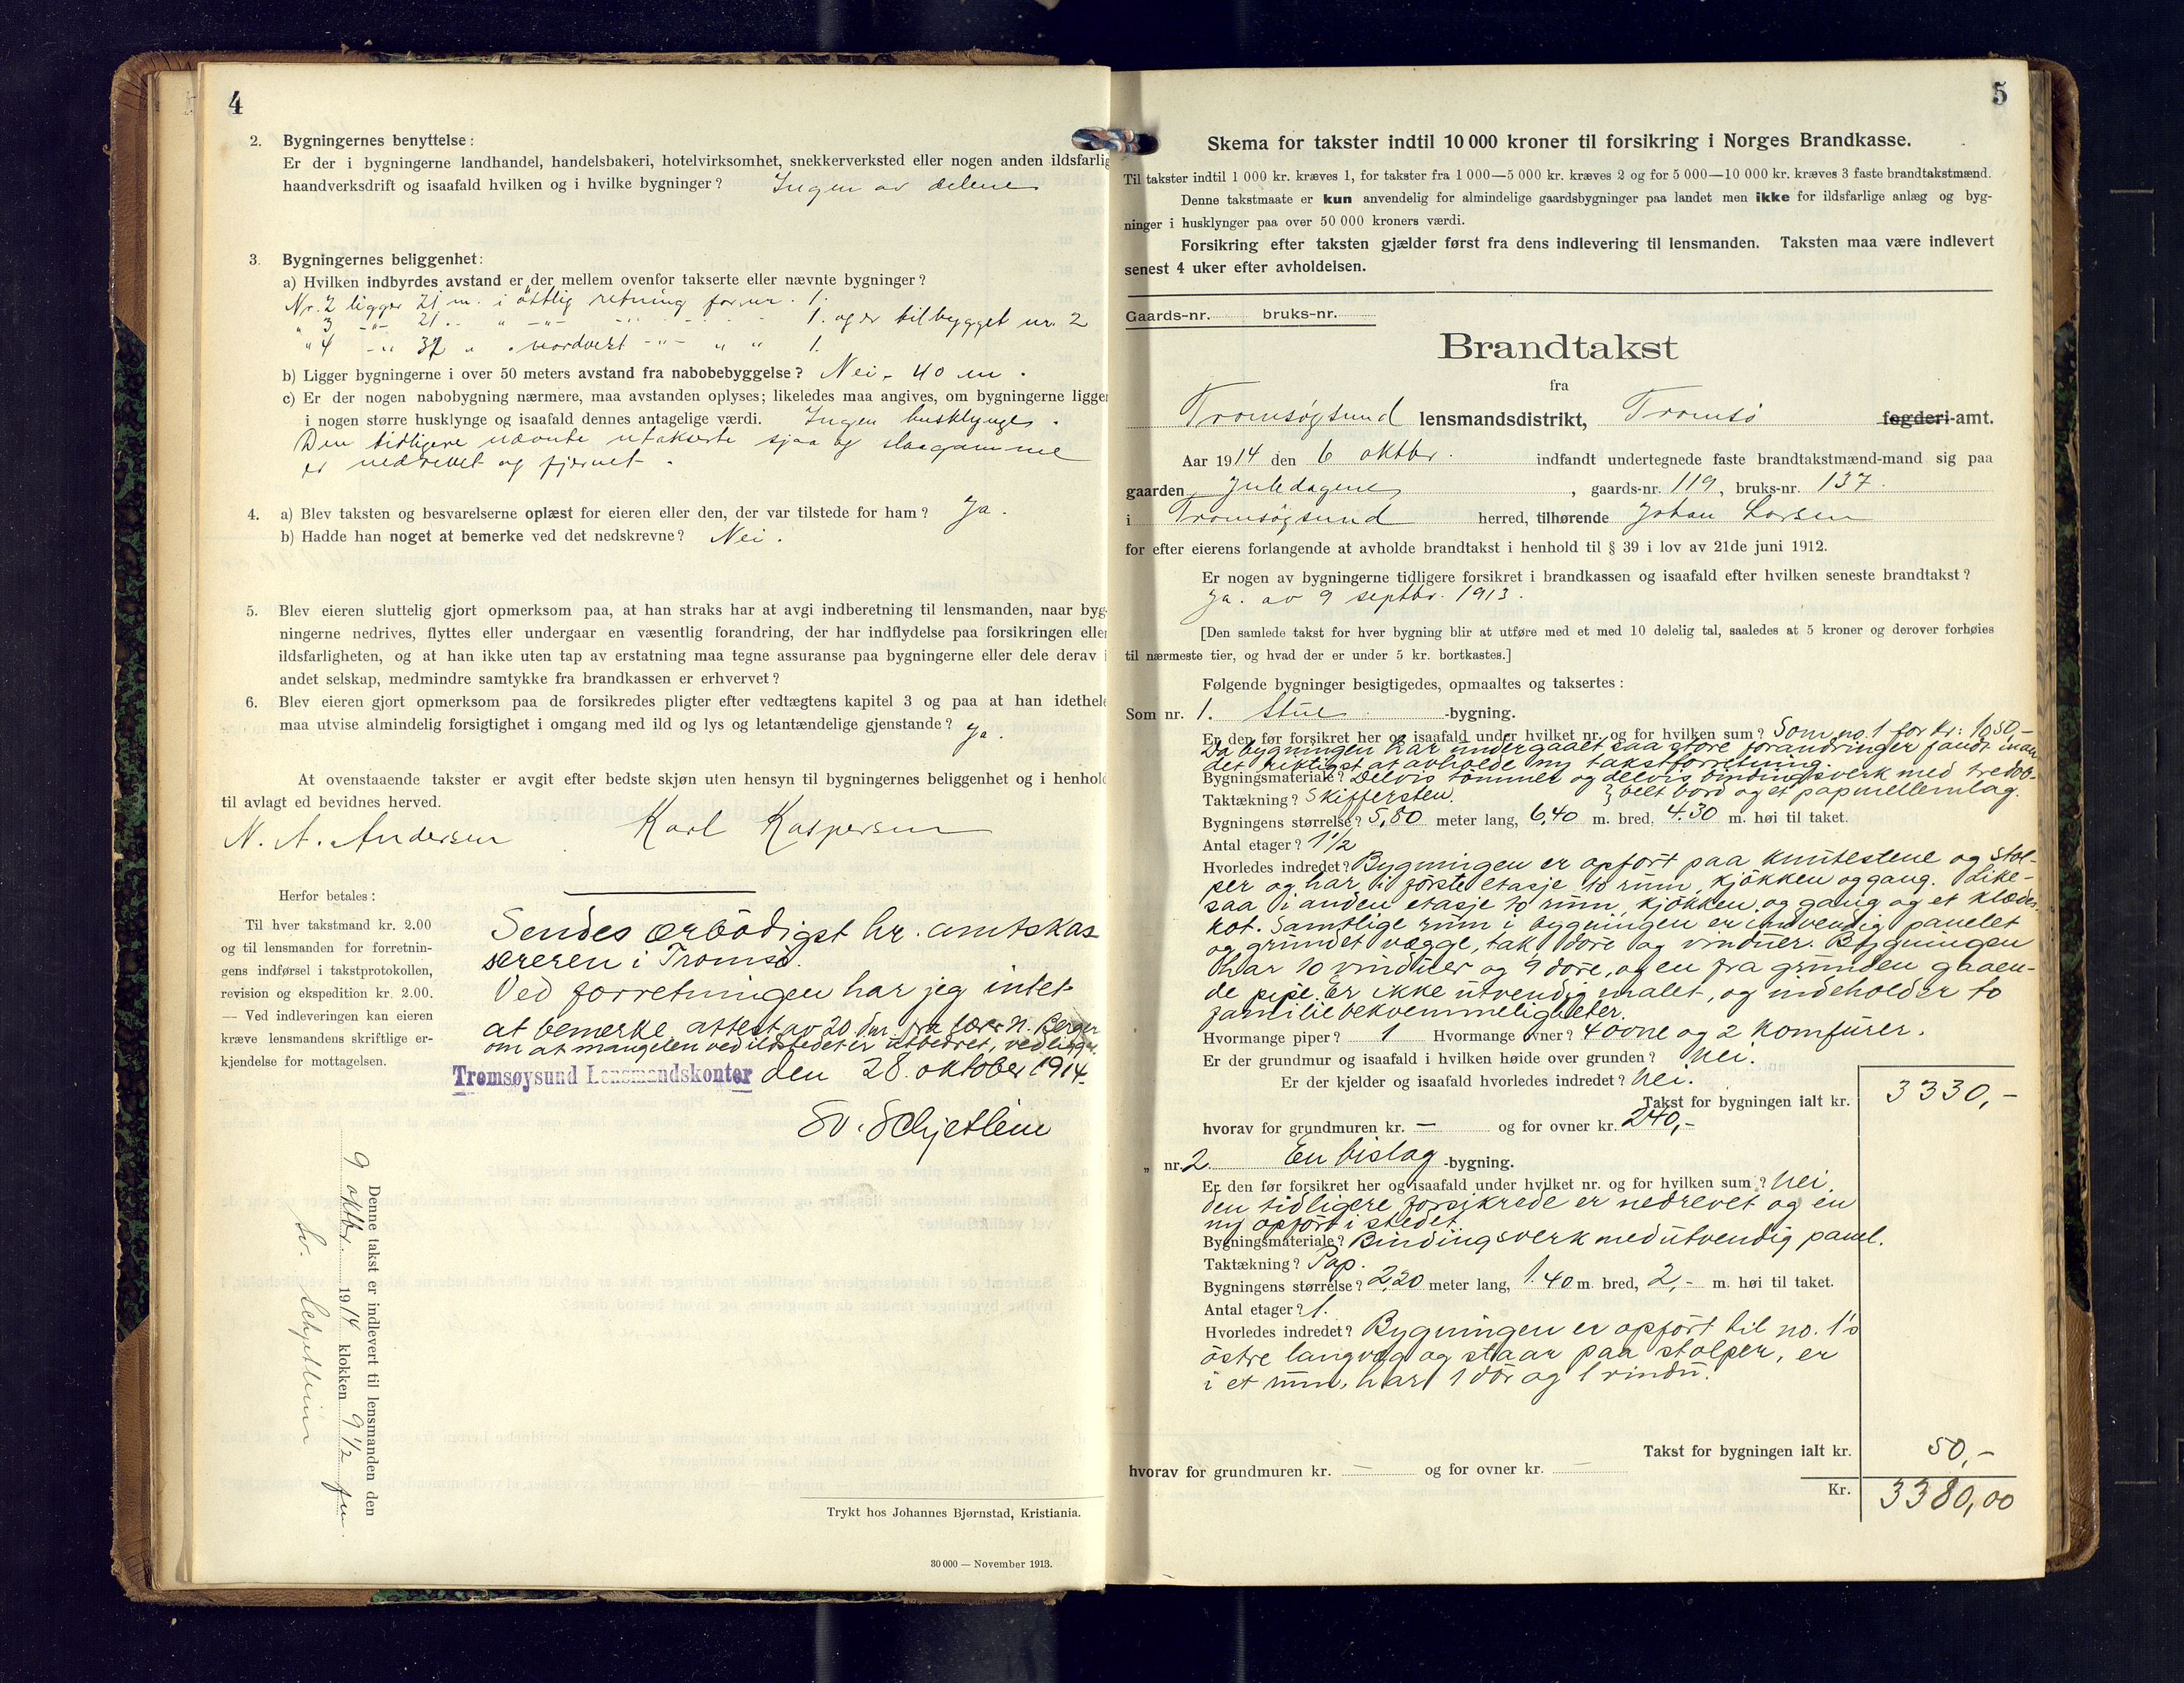 4
2. Bygningernes benyttelse:
Er der i bygningerne landhandel, handelsbakeri, hotelvirksomhet, snekkerverksted eller nogen anden ildsfarlig
haandverksdrift og isaafald hvilken og i hvilke bygninger? Ingen av delene
3. Bygningernes beliggenhet:
a) Hvilken indbyrdes avstand er der mellem ovenfor takserte eller nævnte bygninger?
Nr. 2 ligger 21 m. i östlig retning for nr. 1.
" 3 -"- 21 " " -"- 1. og er tilbygget nr. 2
" 4 -"- 37 " " nordvest -"- " " 1.
b) Ligger bygningerne i over 50 meters avstand fra nabobebyggelse? Nei, 40 m.
c) Er der nogen nabobygning nærmere, maa avstanden oplyses; likeledes maa angives, om bygningerne ligger
i nogen større husklynge og isaafald dennes antagelige værdi. Ingen husklynge.
Den tidligere nævnte utakserte sjaa og staagamme
er nedrevet og fjernet.
4. a) Blev taksten og besvarelserne oplæst for eieren eller den, der var tilstede for ham? Ja.
b) Hadde han noget at bemerke ved det nedskrevne? Nei.
5. Blev eieren sluttelig gjort opmerksom paa, at han straks har at avgi indberetning til lensmanden, naar byg-
ningerne nedrives, flyttes eller undergaar en væsentlig forandring, der har indflydelse paa forsikringen eller
ildsfarligheten, og at han ikke uten tap av erstatning maa tegne assuranse paa bygningerne eller dele derav i
andet selskap, medmindre samtykke fra brandkassen er erhvervet?
6. Blev eieren gjort opmerksom paa de forsikredes pligter efter vedtægtens kapitel 3 og paa at han idethele
maa utvise almindelig forsigtighet i omgang med ild og lys og letantændelige gjenstande? Ja.
At ovenstaaende takster er avgit efter bedste skjøn uten hensyn til bygningernes beliggenhet og i henhold
til avlagt ed bevidnes herved.
N. A. Andersen Karl Kaspersen
Herfor betales:
Til hver takstmand kr. 2.00
og til lensmanden for forretnin-
gens indførsel i takstprotokollen,
revision og ekspedition kr. 2.00.
— Ved indleveringen kan eieren
kræve lensmandens skriftlige er-
kjendelse for mottagelsen.
Sendes ærbödigst hr. amtskas
sereren i Tromsø.
Ved forretningen har jeg intet
at bemerke, attest av 20 dm. fra N. Berger
om at mangelen ved ildstedet er utbedret, vedligger.
Tromsøysund Lensmandskontor den 28. oktober 1914.
Sv. Schjetlein
Denne takst er indlevert til lensmanden den
9 oktbr. 1914 klokken 9 1/2 fm.
Sv. Schjetlein
Trykt hos Johannes Bjørnstad, Kristiania.
30 000 — November 1913.
5
Skema for takster indtil 10 000 kroner til forsikring i Norges Brandkasse.
Til takster indtil 1 000 kr. kræves 1, for takster fra 1 000—5 000 kr. kræves 2 og for 5 000—10 000 kr. kræves 3 faste brandtakstmænd.
Denne takstmaate er kun anvendelig for almindelige gaardsbygninger paa landet men ikke for ildsfarlige anlæg og byg-
ninger i husklynger paa over 50 000 kroners værdi.
Forsikring efter taksten gjælder først fra dens indlevering til lensmanden. Taksten maa være indlevert
senest 4 uker efter avholdelsen.
Gaards-nr. bruks-nr.
Brandtakst
fra
Tromsøysund lensmandsdistrikt, Tromsö fogderi-amt.
Aar 1914 den 6 oktbr. indfandt undertegnede faste brandtakstmænd-mand sig paa
gaarden Juledagenes, gaards-nr. 119, bruks-nr. 137.
i Tromsøysund herred, tilhørende Johan Larsen
for efter eierens forlangende at avholde brandtakst i henhold til § 39 i lov av 21de juni 1912.
Er nogen av bygningerne tidligere forsikret i brandkassen og isaafald efter hvilken seneste brandtakst?
Ja. av 9 septbr. 1913.
[Den samlede takst for hver bygning blir at utføre med et med 10 delelig tal, saaledes at 5 kroner og derover forhøies
til nærmeste tier, og hvad der er under 5 kr. bortkastes.]
Følgende bygninger besigtigedes, opmaaltes og taksertes:
Som nr. 1. Stue -bygning.
Er den før forsikret her og isaafald under hvilket nr. og for hvilken sum? Som no. 1 for kr: 1050,-
Da bygningen har undergaaet saa store forandringer fandt man
det riktigst at avholde ny takstforretning.
Bygningsmateriale? Delvis tömmer og delvis bindingsverk med tredob-
Taktækning? Skiffersten. } belt bord og et papmellemlag.
Bygningens størrelse? 5,80 meter lang, 6,40 m. bred, 4.30 m. høi til taket.
Antal etager? 1 1/2
Hvorledes indredet? Bygningen er opfört paa knutestene og stol-
per og har i förste etasje to rum, kjökken og gang. Like-
saa i anden etasje to rum, kjökken og gang og et klædes-
kot. Samtlige rum i bygningen er indvendig panelet
og grundet vægge, tak, döre og vinduer. Bygningen
har 10 vinduer og 9 döre, og en fra grunden gaaen-
de pipe. Er ikke utvendig malet, og indeholder to
familiebekvemmeligheter.
Hvormange piper? 1 Hvormange ovner? 4 ovne og 2 komfurer.
Er der grundmur og isaafald i hvilken høide over grunden? Nei.
Er der kjelder og isaafald hvorledes indredet? Nei.
Takst for bygningen ialt kr. 3330,-
hvorav for grundmuren kr. — og for ovner kr. 240,-
" nr. 2 En bislag -bygning.
Er den før forsikret her og isaafald under hvilket nr. og for hvilken sum? Nei,
den tidligere forsikrede er nedrevet og en
ny opfört i stedet.
Bygningsmateriale? Bindingsverk med utvendig panel.
Taktækning? Pap.
Bygningens størrelse? 2,20 meter lang, 1.40 m. bred, 2,- m. høi til taket.
Antal etager? 1.
Hvorledes indredet? Bygningen er opfört til no. 1's
östre langvæg og staar paa stolper, er
i et rum, har 1 dör og 1 vindu.
Takst for bygningen ialt kr. 50,-
hvorav for grundmuren kr. — og for ovner kr. —
Kr. 3380,00